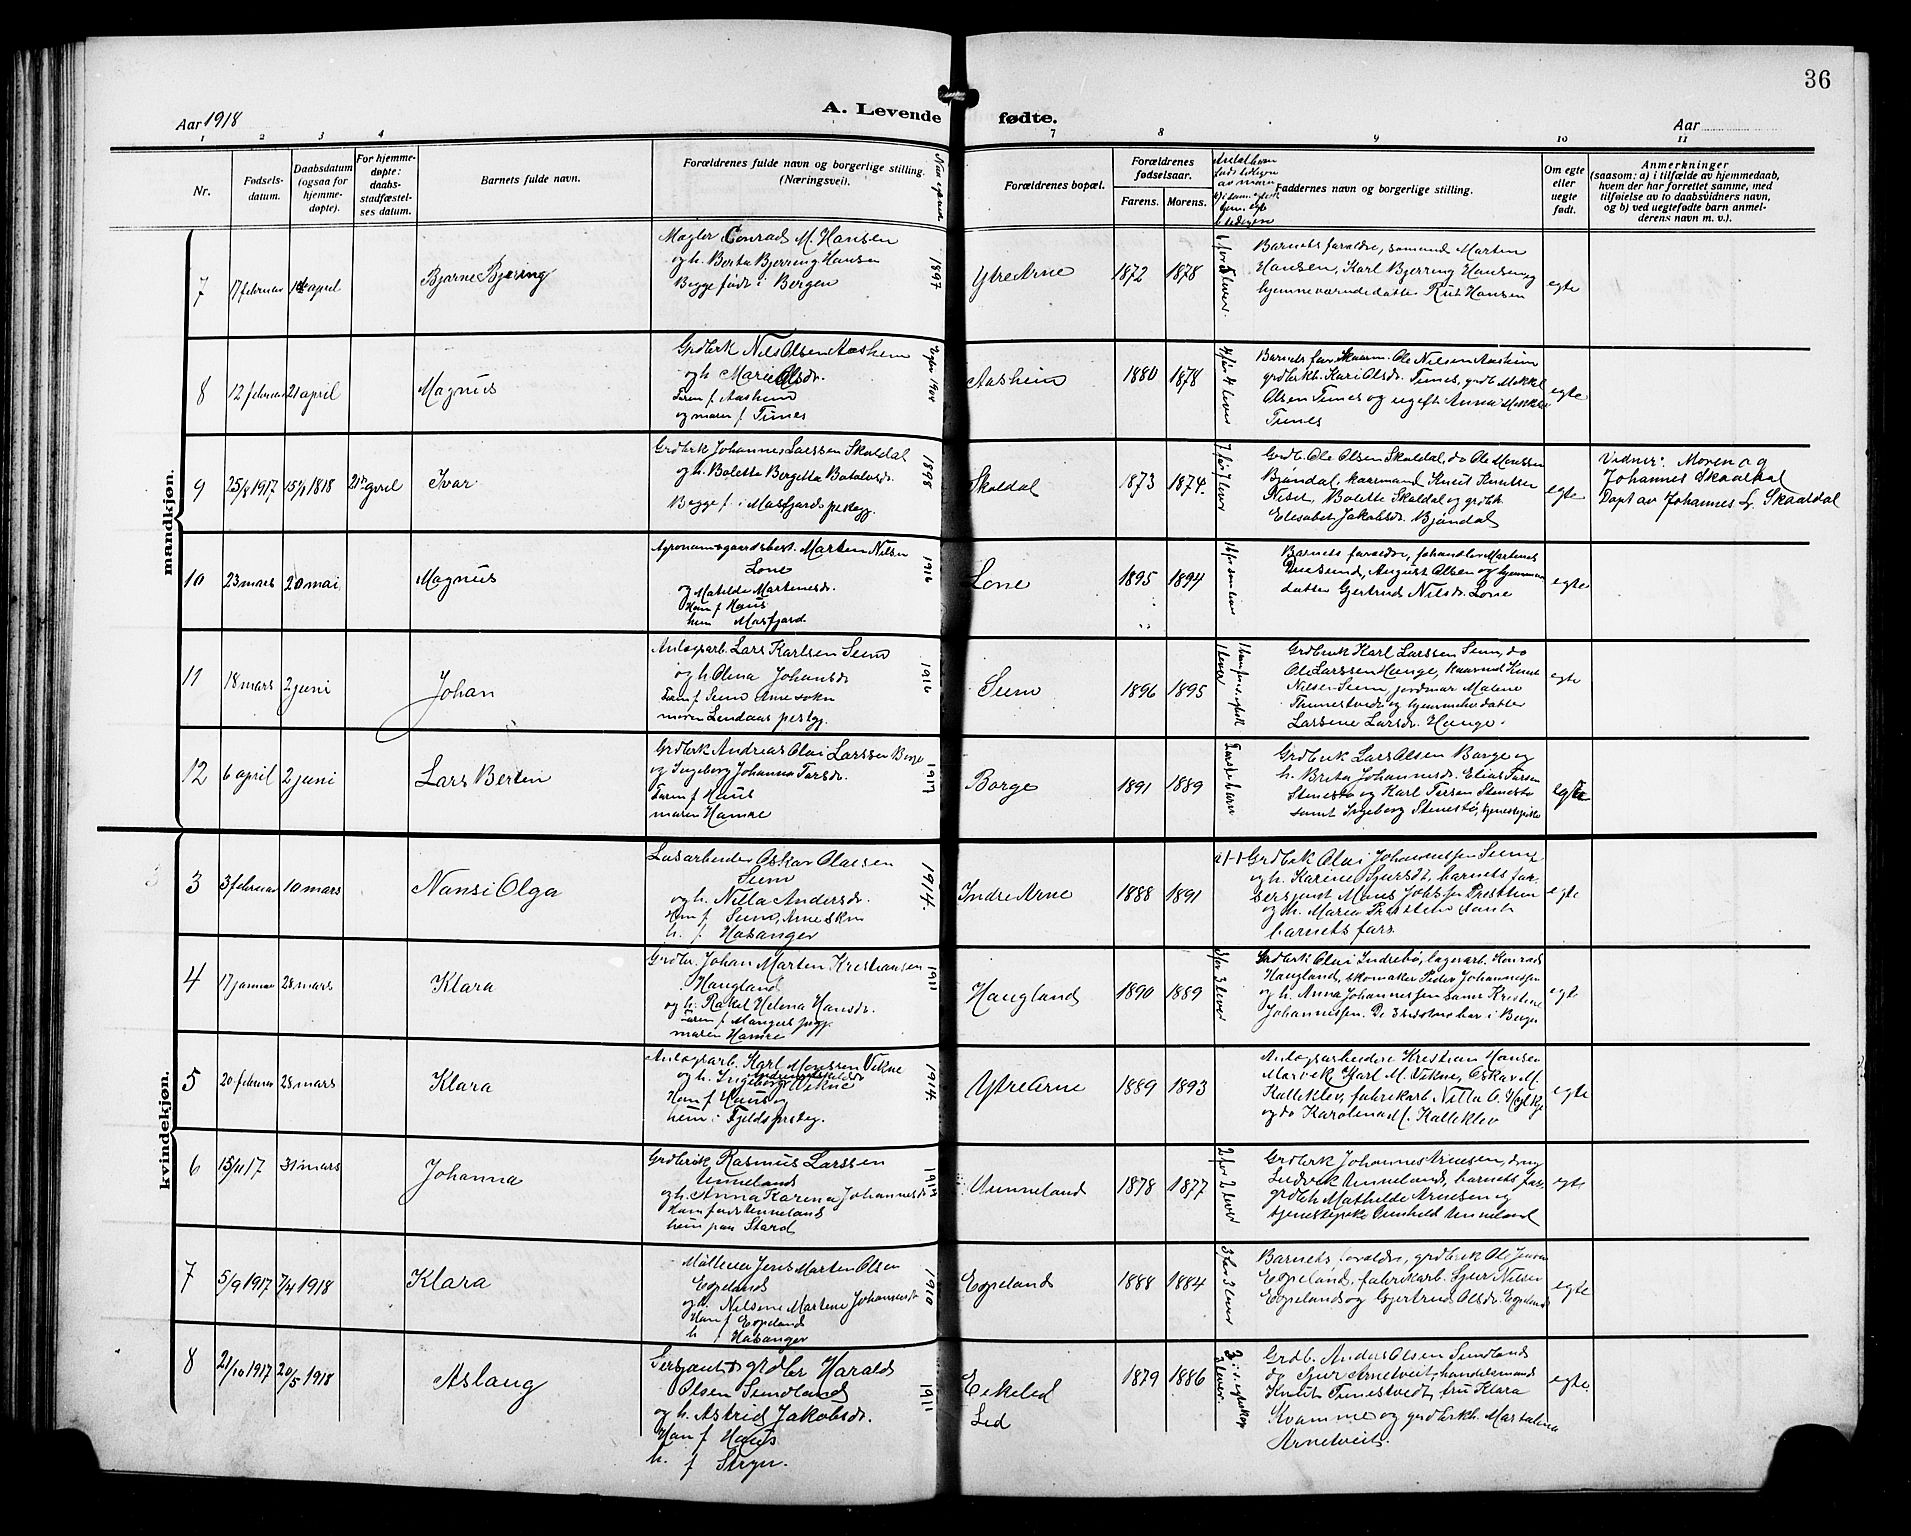 36
Aar 1918
A. Levende fødte.
Aar
1 2 3 4 7 8 9 10 11
Nr.
Fødsels-
datum.
Daabsdatum
(ogsaa for
hjemme-
døpte).
For hjemme-
døpte:
daabs-
stadfæstel-
ses datum.
Barnets fulde navn.
Forældrenes fulde navn og borgerlige stilling.
(Næringsvei).
Forældrenes bopæl.
Forældrenes
fødselsaar.
Farens. Morens.
Faddernes navn og borgerlige stilling.
Om egte
eller
uegte
født.
Anmerkninger
(saasom: a) i tilfælde av hjemmedaab,
hvem der har forrettet samme, med
tilføielse av to daabsvidners navn,
og b) ved uegtefødte barn anmel-
derens navn m. v.).
mandkjøn.
7 17 februar april Bjarne Bjering
Mægler Conrad M. Hansen
og h. Berta Bjerring Hansen
Begge født i Bergen
1897
Ytre Arne 1872 1878
Barnets forældre, sømand Marten
Hansen, Karl Bjerring Hansen og
hjemmeværnde datter Rut Hansen
egte
8 12 februar 21 april Magnus
Grdbrk Nils Olsen Aasheim
og h. Mari Olsdr.
Faren f. Aasheim
og moren f. Tunes
1904
Aasheim 1880 1878
4 før 4 lever
Barnets far, Skaarm. Ole Nilsen Aasheim
grdbrkh. Kari Olsdr. Tunes, grdb. Mikkel
Olsen Tunes og ugift Anna Mikkelsd
Tunes
egte
9 25/8 1917 15/9 1818 21de april Ivar
Grdbrk Johannes Larssen Skaldal
og h. Bolette Bergitta Batalvsdr.
Begge f. i Masfjords prstgj.
1898
Skaldal 1873 1874.
7 før 7 lever
Grdb. Ole Olsen Skaldal, do Ole Monssen
Bjøndal, kaarmand Knut Knutsen
Risa, Bolette Skaldal og grdbk
Elisabet Jakobsdr. Bjøndal
egte
Vidner: Moren og
Johannes Skaaldal
Døpt av Johannes L. Skaaldal
10 23 mars 20 mai Magnus
Agronom og gaardsbest. Marten Nilsen
Lone
og Matilde Martensdr.
Ham f. Haus
hun Masfjord
1916
Lone 1895 1894
Barnets forældre, Martines
August Olsen og hjemmev
datter Gjertrud Nilsdr. Lone
egte
11 18 mars 2 juni Johan
Anlægsarb. Lars Karlsen Seim
og h. Olina Johansdr
Faren f. Seim Arne sokn
moren Lindaas prstgj.
1916
Seim 1896 1895
1 lever
Grdbruk Karl Larssen Seim, do
Ole Larssen Hauge, kaarmd Knut
Nilsen Seim, jordmor Malene
Tunestvedt og hjemmehv datter
Larsine Larsdr. Hauge.
egte
12 6 april 2 juni Lars Berten
Grdbrk Andreas Olai Larssen Borge
og Ingeborg Johanna Larsdr.
Faren f Haus
moren Hamre
1917
Borge 1891 1889
Første barn
Grdbruk Lars Olsen Borge og
h. Brita Johannesdr. Elias Larsen
Stenestø og Karl Larsen Stenestø
samt Ingeborg Stenestø, tjenestepike
egte
kvindekjøn.
3 3 februar 10 mars Nansi Olga
Løsarbeider Oskar Olaisen
Seim
og h. Nilla Andersdr.
Ham f Seim, Arne skn
h. f Hosanger
1914.
Indre Arne 1888 1891
Grdbrk Olai Johannessen Seim,
og h. Karine Sjursdt, barnets far,
sersjent Mons Johs
og h. Maria samt
barnets fars
egte
4 17 januar 28 mars Klara
Grdbr. Johan Marten Kristiansen
Haugland
og h. Rakel Helena Hansdr.
Faren f. Mangers pstgj.
moren Hamre
1911
Haugland 1890 1889
3 før 3 lever
Grdbrk Olai Indrebø, lagerarb. Konrad
Haugland, skomaker Peder Johannessen
og h. Anna Johannessen samt Kristine
Johannessen. De 3 sidstne bor i Bergen
egte
5 20 februar 28 mars Klara
Anlægsarb. Karl Monssen Vikne
og h. Ingeborg Vikne
Ham f Haus og
hun i Fjelds prstg.
1914.
Ytre Arne 1889 1893
Anlægsarbeidere Kristian Hansen
Marvik, Karl M. Vikne, Oskar M.
Kalleklev, fabrikarb. Nilla O. Hylkje
og do Karolena M. Kalleklev
egte
6 15/11 17 31 mars Johanna
Grdbruk Rasmus Larssen
Unneland
og h. Anna Karina Johannesdr
Ham født Unneland
hun paa Stord
Unneland 1878 1877
2 før 2 lever
Grdbrk Johannes Arnesen, drng
Ludvik Unneland, barnets far,
grdbrkh Mathilde Arnesen og
tjenestepike Gunhild Unneland
egte
7 5/9 1917 7/4 1918 Klara
Møller Jens Marten Olsen
Espeland
og h. Nilsine Martine Johannesdr
Ham f Espeland
h f Hosanger
1910
Espeland 1888 1884
3 før 3 lever
Barnets forældre, grdbruk Ole Jensen
Espeland, fabrikarb. Sjur Nilsen
Espeland og Gjertrud Olsdr. Espeland
egte
8 21/10 1917 20/5 1918 Aslaug
Sersjant & grdbr Harald
Olsen Sundland
og h. Astrid Jakobsdr.
Ham f Haus
h. f Stryn
1911
Eikeled
Led
1879 1886
3 lever.
Grdb. Anders Olsen Sundland
do Sjur Arnetveit, handelsmand
Knut Tunestvedt, fru Klara
Kvamme og grdbrkh. Martalena
Arnetveit.
egte